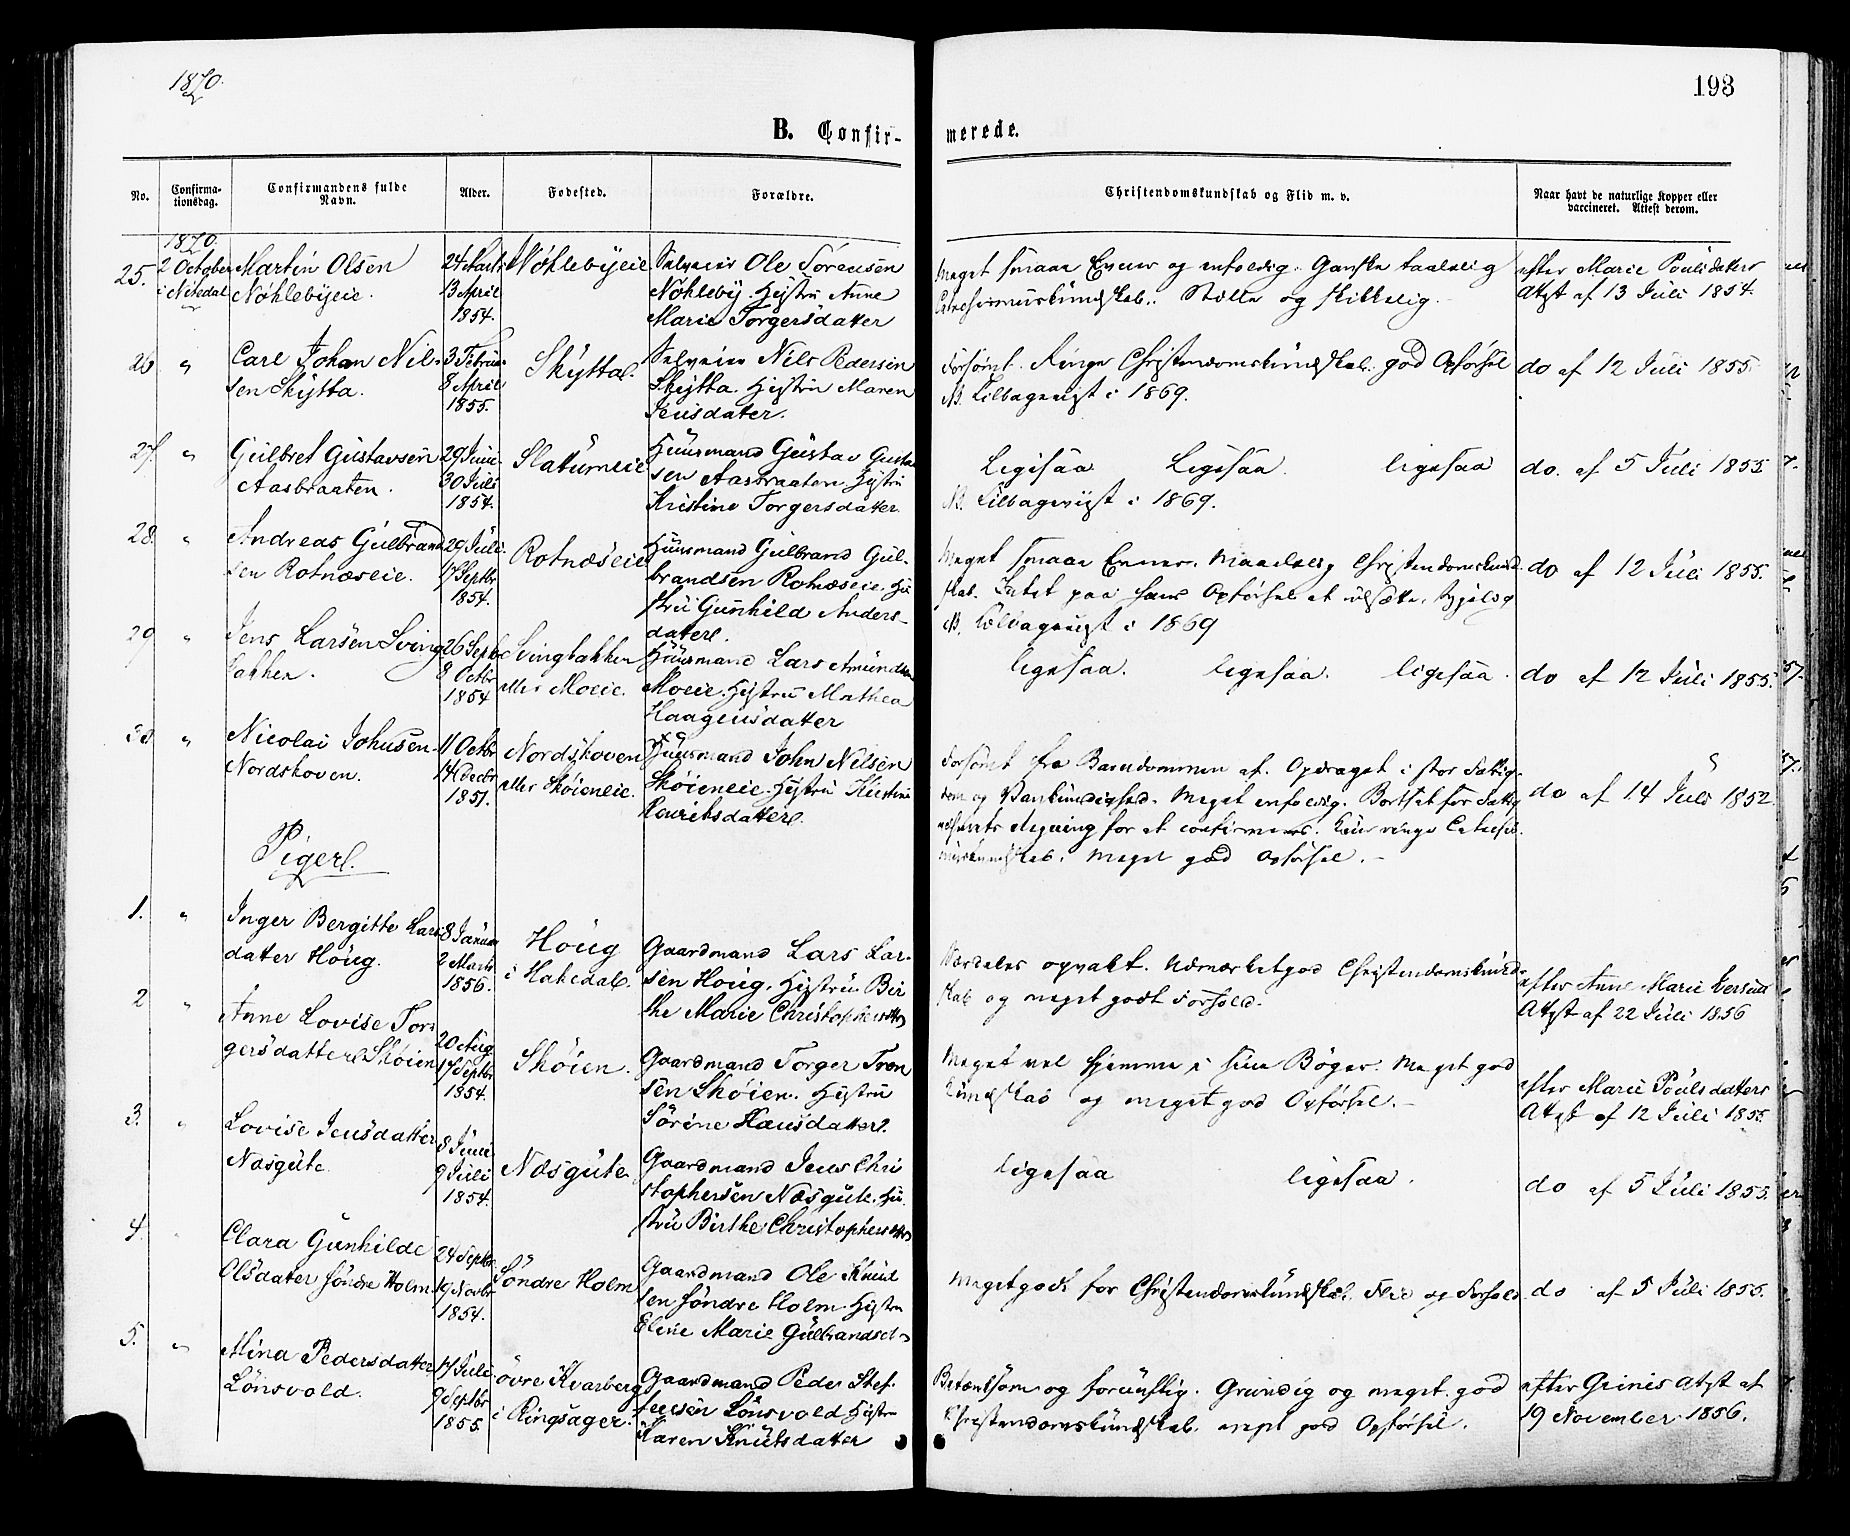 1870.
193
B. Confir-
merede.
No.
Confirma-
tionsdag.
Confirmandens fulde
Navn.
Alder.
Fødested.
Forældre.
Christendomskundskab og Flid m. v.
Naar havt de naturlige Kopper eller
vaccineret. Attest derom.
1870.
25.
2 October
i Nitedal
Martin Olsen
Nøhlebyeie.
24 Marts
13 April
1854.
Nøhlebyeie
Selveier Ole Sørensen
Nøhleby. Hustru Anne
Marie Torgersdatter
Meget smaae Evner og enfoldig. Ganske taalelig
Catechismuskundskab. Stille og skikkelig.
efter Marie Poulsdatters
Attst af 13 Juli 1854.
26
"
Carl Johan Nil-
sen Skytta.
3 Februar
8 April
1855.
Skytta.
Selveier Nils Pedersen
Skytta. Hustru Maren
Jensdater.
Forsømt. Ringe Christendomskundskab. god Opførsel
NB. Tilbageviist i 1869.
do af 12 Juli 1855.
27.
"
Gulbret Gustavsen
Aasbraaten.
29 Juni
30 Juli
1854.
Slattumeie
Huusmand Gustav Gusta
sen Aasbraaten. Hustru
Kristine Torgersdatter.
Ligesaa Ligesaa. ligesaa
NB. Tilbageviist i 1869.
do. af 5 Juli 1855
28.
"
Andreas Gulbrand
sen Rotnæseie.
29 Juli
17 Septbr
1854.
Rotnæseie
Huusmand Gulbrand Gul-
brandsen Rotnæseie. Hu
stru Gunhild Anders-
datter.
Meget smaae Evner. Maadelig Christendomskund-
skab. Intet paa hans Opførsel at udsætte.
NB. Tilbageviist i 1869
do af 12 Juli 1855.
29
"
Jens Larsen Sving
bakken.
26 Septb
8 Octbr
1854
Svingbakken
eller Moeie.
Huusmand Lars Amundsen
Moeie. Hustru Mathea
Haagensdatter
ligesaa. ligesaa. ligesaa.
do af 12 Juli 1855.
30
"
Nicolai Johnsen
Nordskoven.
11 Octbr
14 Decbr
1851.
Nordskoven
eller Skøieneie.
Huusmand John Nilsen
Skøieneie. Hustru Kirstine
Houritsdatter.
Forsømt fra Barndommen af. Opdraget i stor Fattig-
dom og Vankundighed. Meget enfoldig. Bortsat for Fattig
væsenets Regning for at confirmeres. Kun ringe Catechis-
muskundskab. Meget god Opførsel.
do af 14 Juli 1852
Piger.
1.
"
Inger Bergitte Lars
datter Houg.
8 Januar
2 Marts
1856.
Houg
i Hakedal.
Gaardmand Lars Lar-
sen Houg. Hustru Bir
the Marie Christophersdtr
Særdeles opvakt. Udmærket god Christendomskund-
skab og meget godt Forhold.
efter Anne Marie Iversens
Attst af 22 Juli 1856
2
"
Anne Lovise Tor
gersdatter Skøien
20 Aug
17 Septbr
1854.
Skøien.
Gaardmand Torger Tron
sen Skøien. Hustru
Sørine Hansdatter.
Meget vel hjemme i sine Bøger. Meget god
Kundskab og meget god Opførsel.
efter Marie Poulsdatters
Attst af 12 Juli 1855.
3.
"
Lovise Jensdatter
Næsgute
8 Juni
9 Juli
1854.
Næsgute
Gaardmand Jens Chri
stophersen Næsgute. Hu-
stru Birthe Christophersdtr
ligesaa ligesaa.
do af 5 Juli 1855.
4.
"
Clara Gunhilde
Olsdater søndre Holm
24 Septbr
19 Novbr
1854.
Søndre Holm
Gaardmand Ole Knud
sen søndre Holm. Hustru
Elene Marie Gulbrandsd.
Meget godt for Christendomskundskab. Flid og Forhold
do af 5 Juli 1855.
5.
"
Mina Pedersdatter
Lønsvold.
17 Juli
9 Septbr
1855.
øvre Kvarberg
i Ringsager.
Gaardmand Peder Stef-
fensen Lønsvold Hustru
Karen Knutsdatter
Betænksom og fornuftig. Grundig og meget god
Christendomskundskab. meget god Opførsel.
efter Grinis Attst af
19 November 1856.